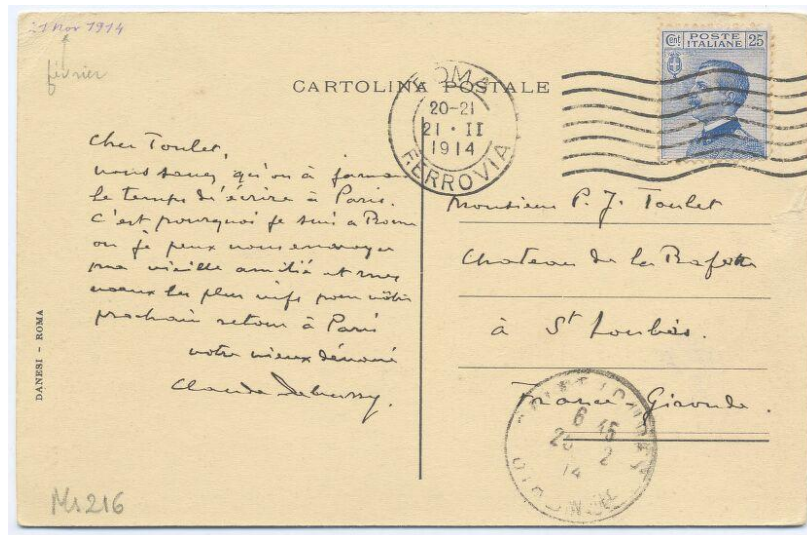 21 Nov 1914
février
CARTOLINA POSTALE
POSTE
ITALIANE
Cent 25
ROMA
20-21
21 · II
1914
FERROVIA
Cher Toulet,
vous savez qu'on a jamais
le temps d'écrire à Paris.
C'est pourquoi je suis à Rome
où je peux vous envoyer
ma vieille amitié et mes
vœux les plus vifs pour vôtre
prochain retour à Paris
votre vieux dévoué
Claude Debussy.
Monsieur P. J. Toulet
Chateau de la Rafette
à St Loubès.
France Gironde.
6 45
25 2
14
GIRONDE
DANESI - ROMA
Ms 216